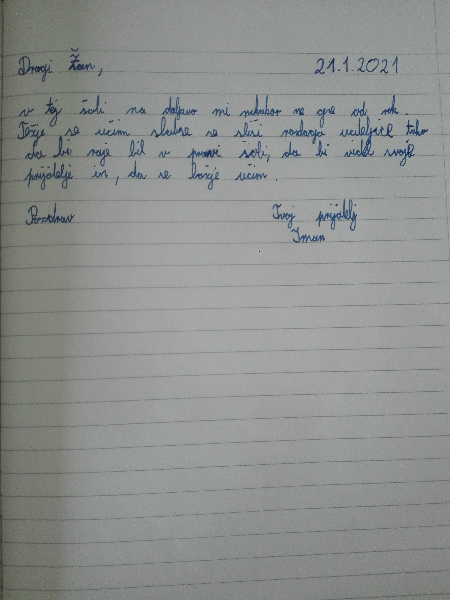 Dragi Žan, 21.1.2021
v tej šoli na daljavo mi nikakor ne gre od rok.
Težje se učim slabše se sliši razlaga učiteljice tako
da bi raje bil v pravi šoli, da bi videl svoje
prijatelje in, da se lažje učim.
Pozdrav Tvoj prijatelj
Iman